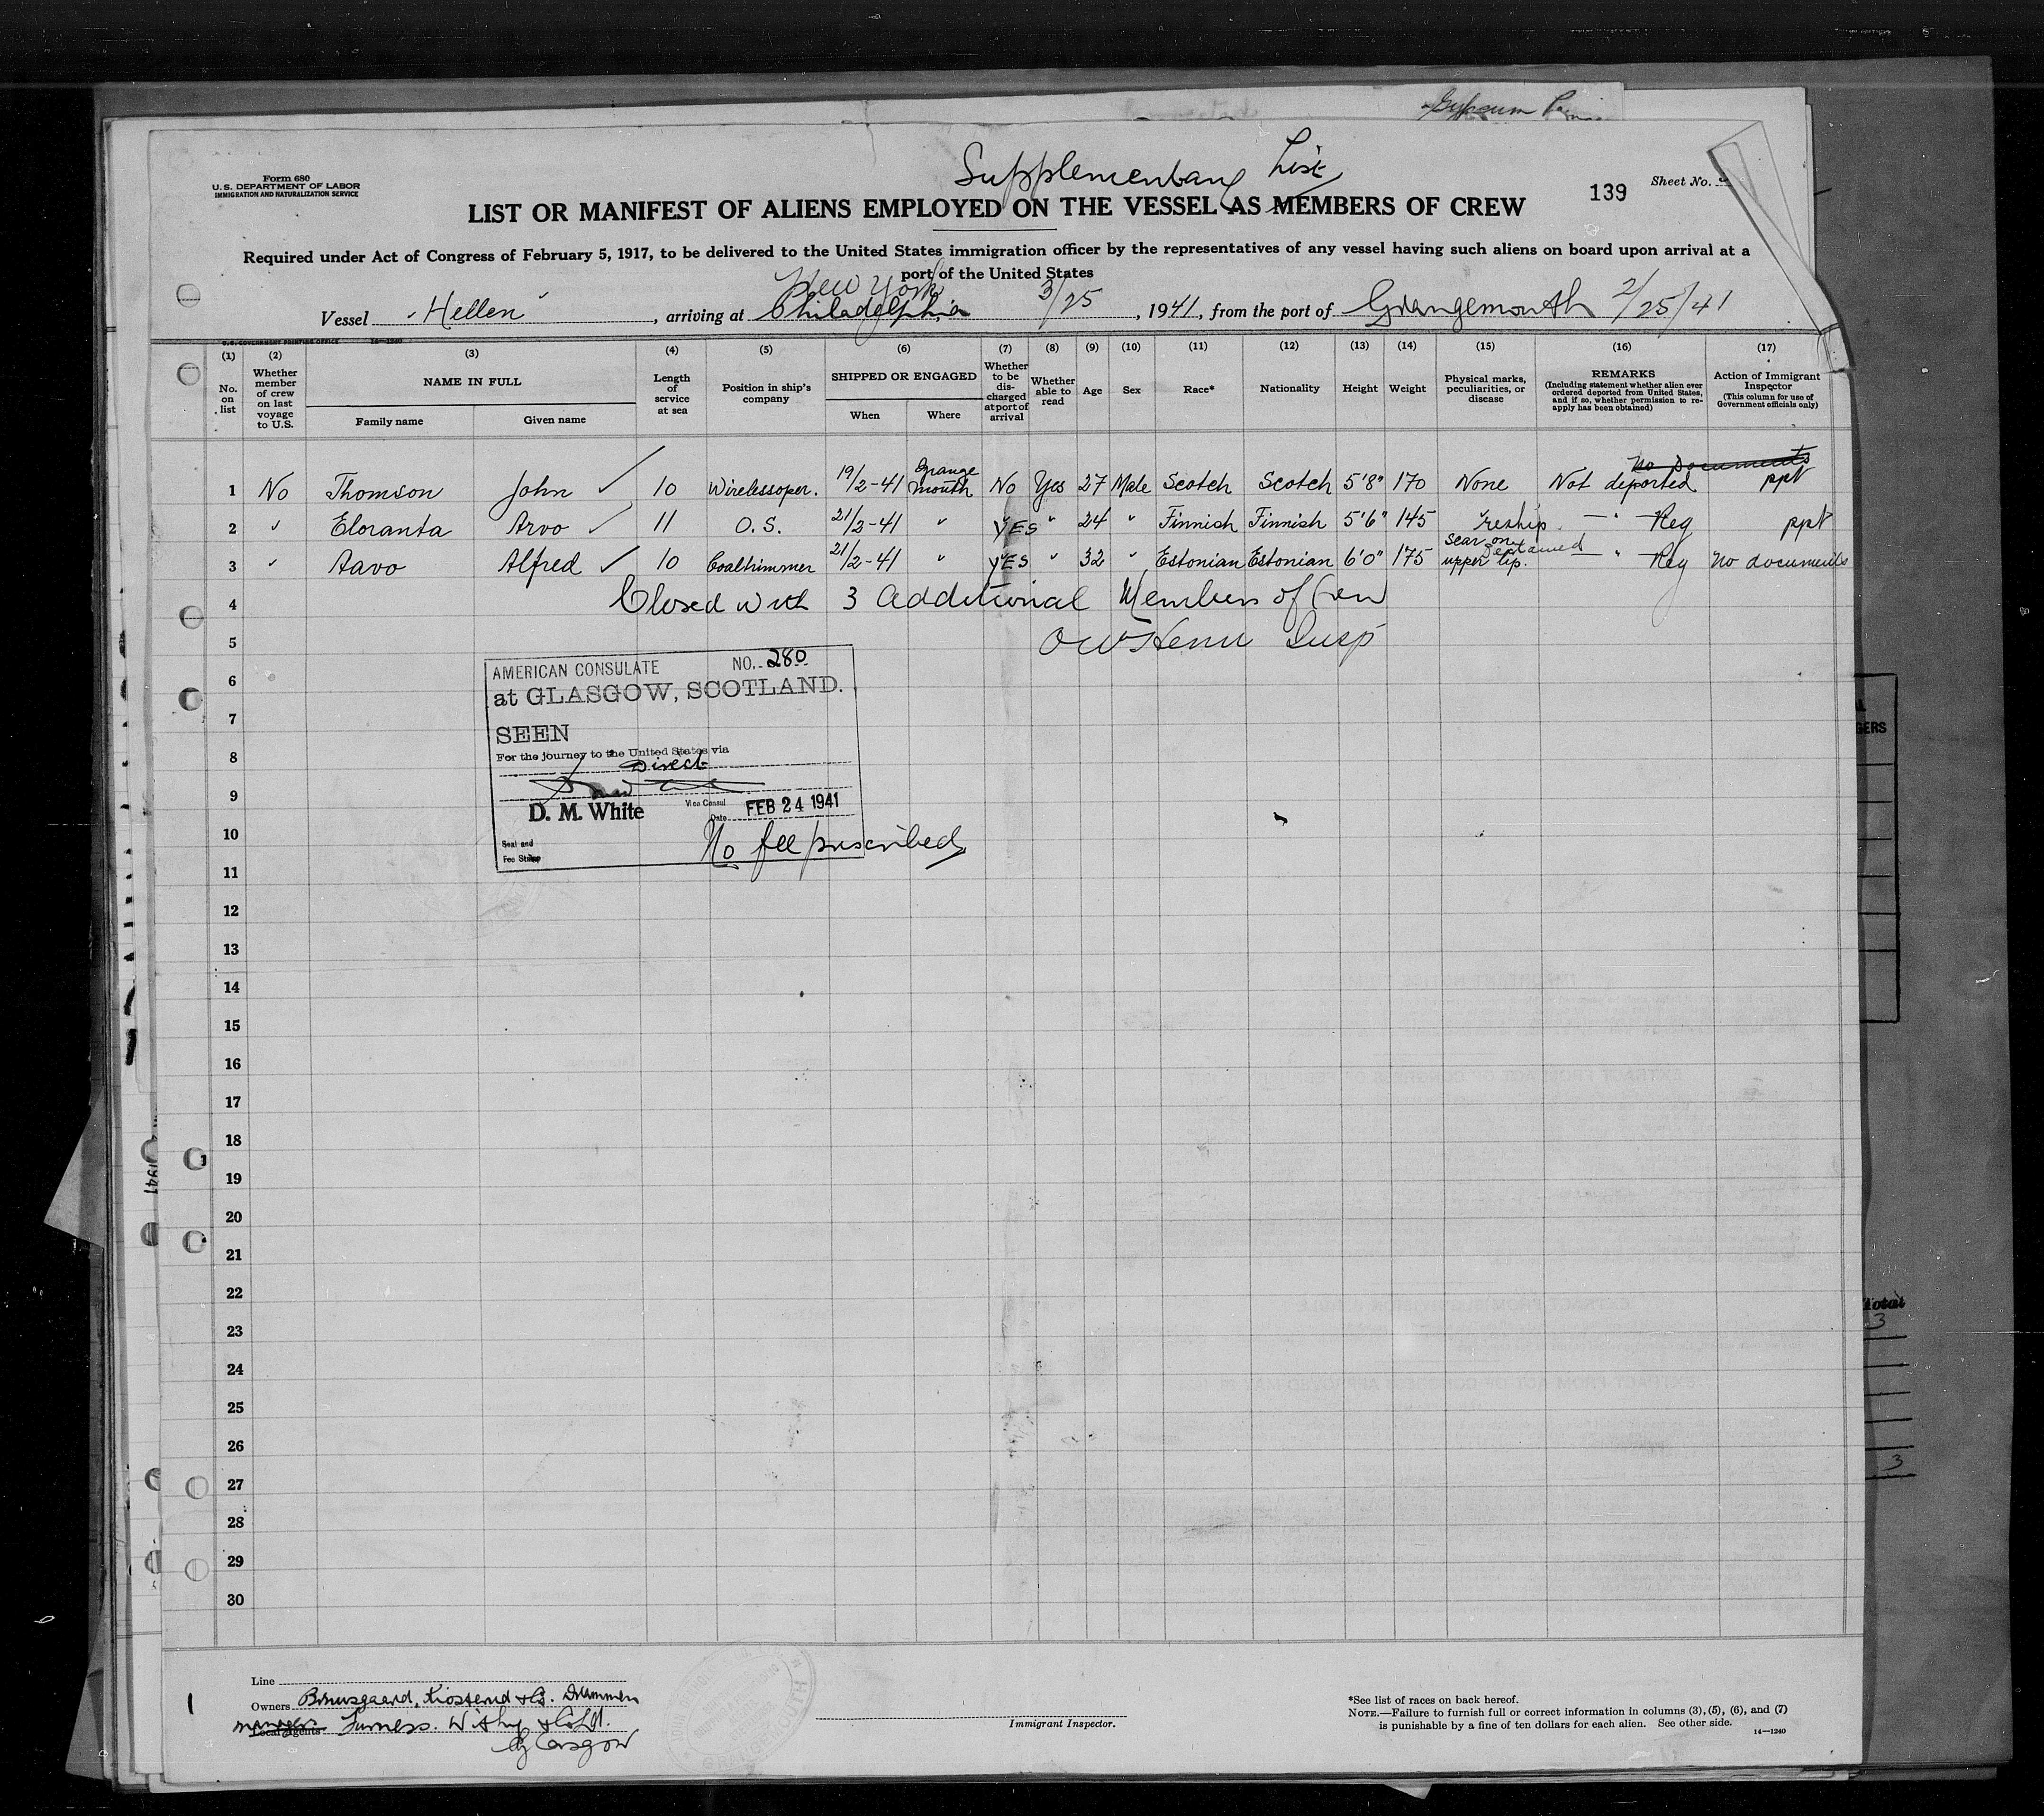 Gypsum
Supplementary List
Form 680
U.S. DEPARTMENT OF LABOR
IMMIGRATION AND NATURALIZATION SERVICE
139
Sheet No.
LIST OR MANIFEST OF ALIENS EMPLOYED ON THE VESSEL AS MEMBERS OF CREW
Required under Act of Congress of February 5, 1917, to be delivered to the United States immigration officer by the representatives of any vessel having such aliens on board upon arrival at a
port of the United States
New York
Vessel Hellen, arriving at Philadelphia 3/25, 1941, from the port of Grangemouth 2/25/41
U.S. GOVERNMENT PRINTING OFFICE 14—1240
(1) (2) (3) (4) (5) (6) (7) (8) (9) (10) (11) (12) (13) (14) (15) (16) (17)
No. on list
Whether member of crew on last voyage to U.S.
NAME IN FULL
Family name
Given name
Length of service at sea
Position in ship's company
SHIPPED OR ENGAGED
When
Where
Whether to be discharged at port of arrival
Whether able to read
Age
Sex
Race*
Nationality
Height
Weight
Physical marks, peculiarities, or disease
REMARKS
(Including statement whether alien ever ordered deported from United States, and if so, whether permission to reapply has been obtained)
Action of Immigrant Inspector
(This column for use of Government officials only)
No Documents
1 No Thomson John ✓ 10 Wirelessoper. 19/2-41 Grange mouth No Yes 27 Male Scotch Scotch 5'8" 170 None Not deported ppt
2 " Eloranta Arvo ✓ 11 O.S. 21/2-41 " YES " 24 " Finnish Finnish 5'6" 145 " reship — " — Reg ppt
3 " Aavo Alfred ✓ 10 Coaltrimmer 21/2-41 " YES " 32 " Estonian Estonian 6'0" 175 scar on upper lip. Detained — " Reg No documents
4 Closed with 3 additional Members of Crew
5 Insp
6
7
8
9
10
11
12
13
14
15
16
17
18
19
20
21
22
23
24
25
26
27
28
29
30
AMERICAN CONSULATE NO. 280
at GLASGOW, SCOTLAND.
SEEN
For the journey to the United States via
Direct
D. M. White Vice Consul
Date FEB 24 1941
Seal and
Fee Stamp
No fee prescribed
1941
GERS
Total
3
3
1
Line
Owners Bruusgaard, Kiosterud & Co. Drammen
managers Local Agents Furness. Withy & Co Ltd.
Glasgow
Immigrant Inspector.
*See list of races on back hereof.
NOTE.—Failure to furnish full or correct information in columns (3), (5), (6), and (7)
is punishable by a fine of ten dollars for each alien. See other side.
14—1240